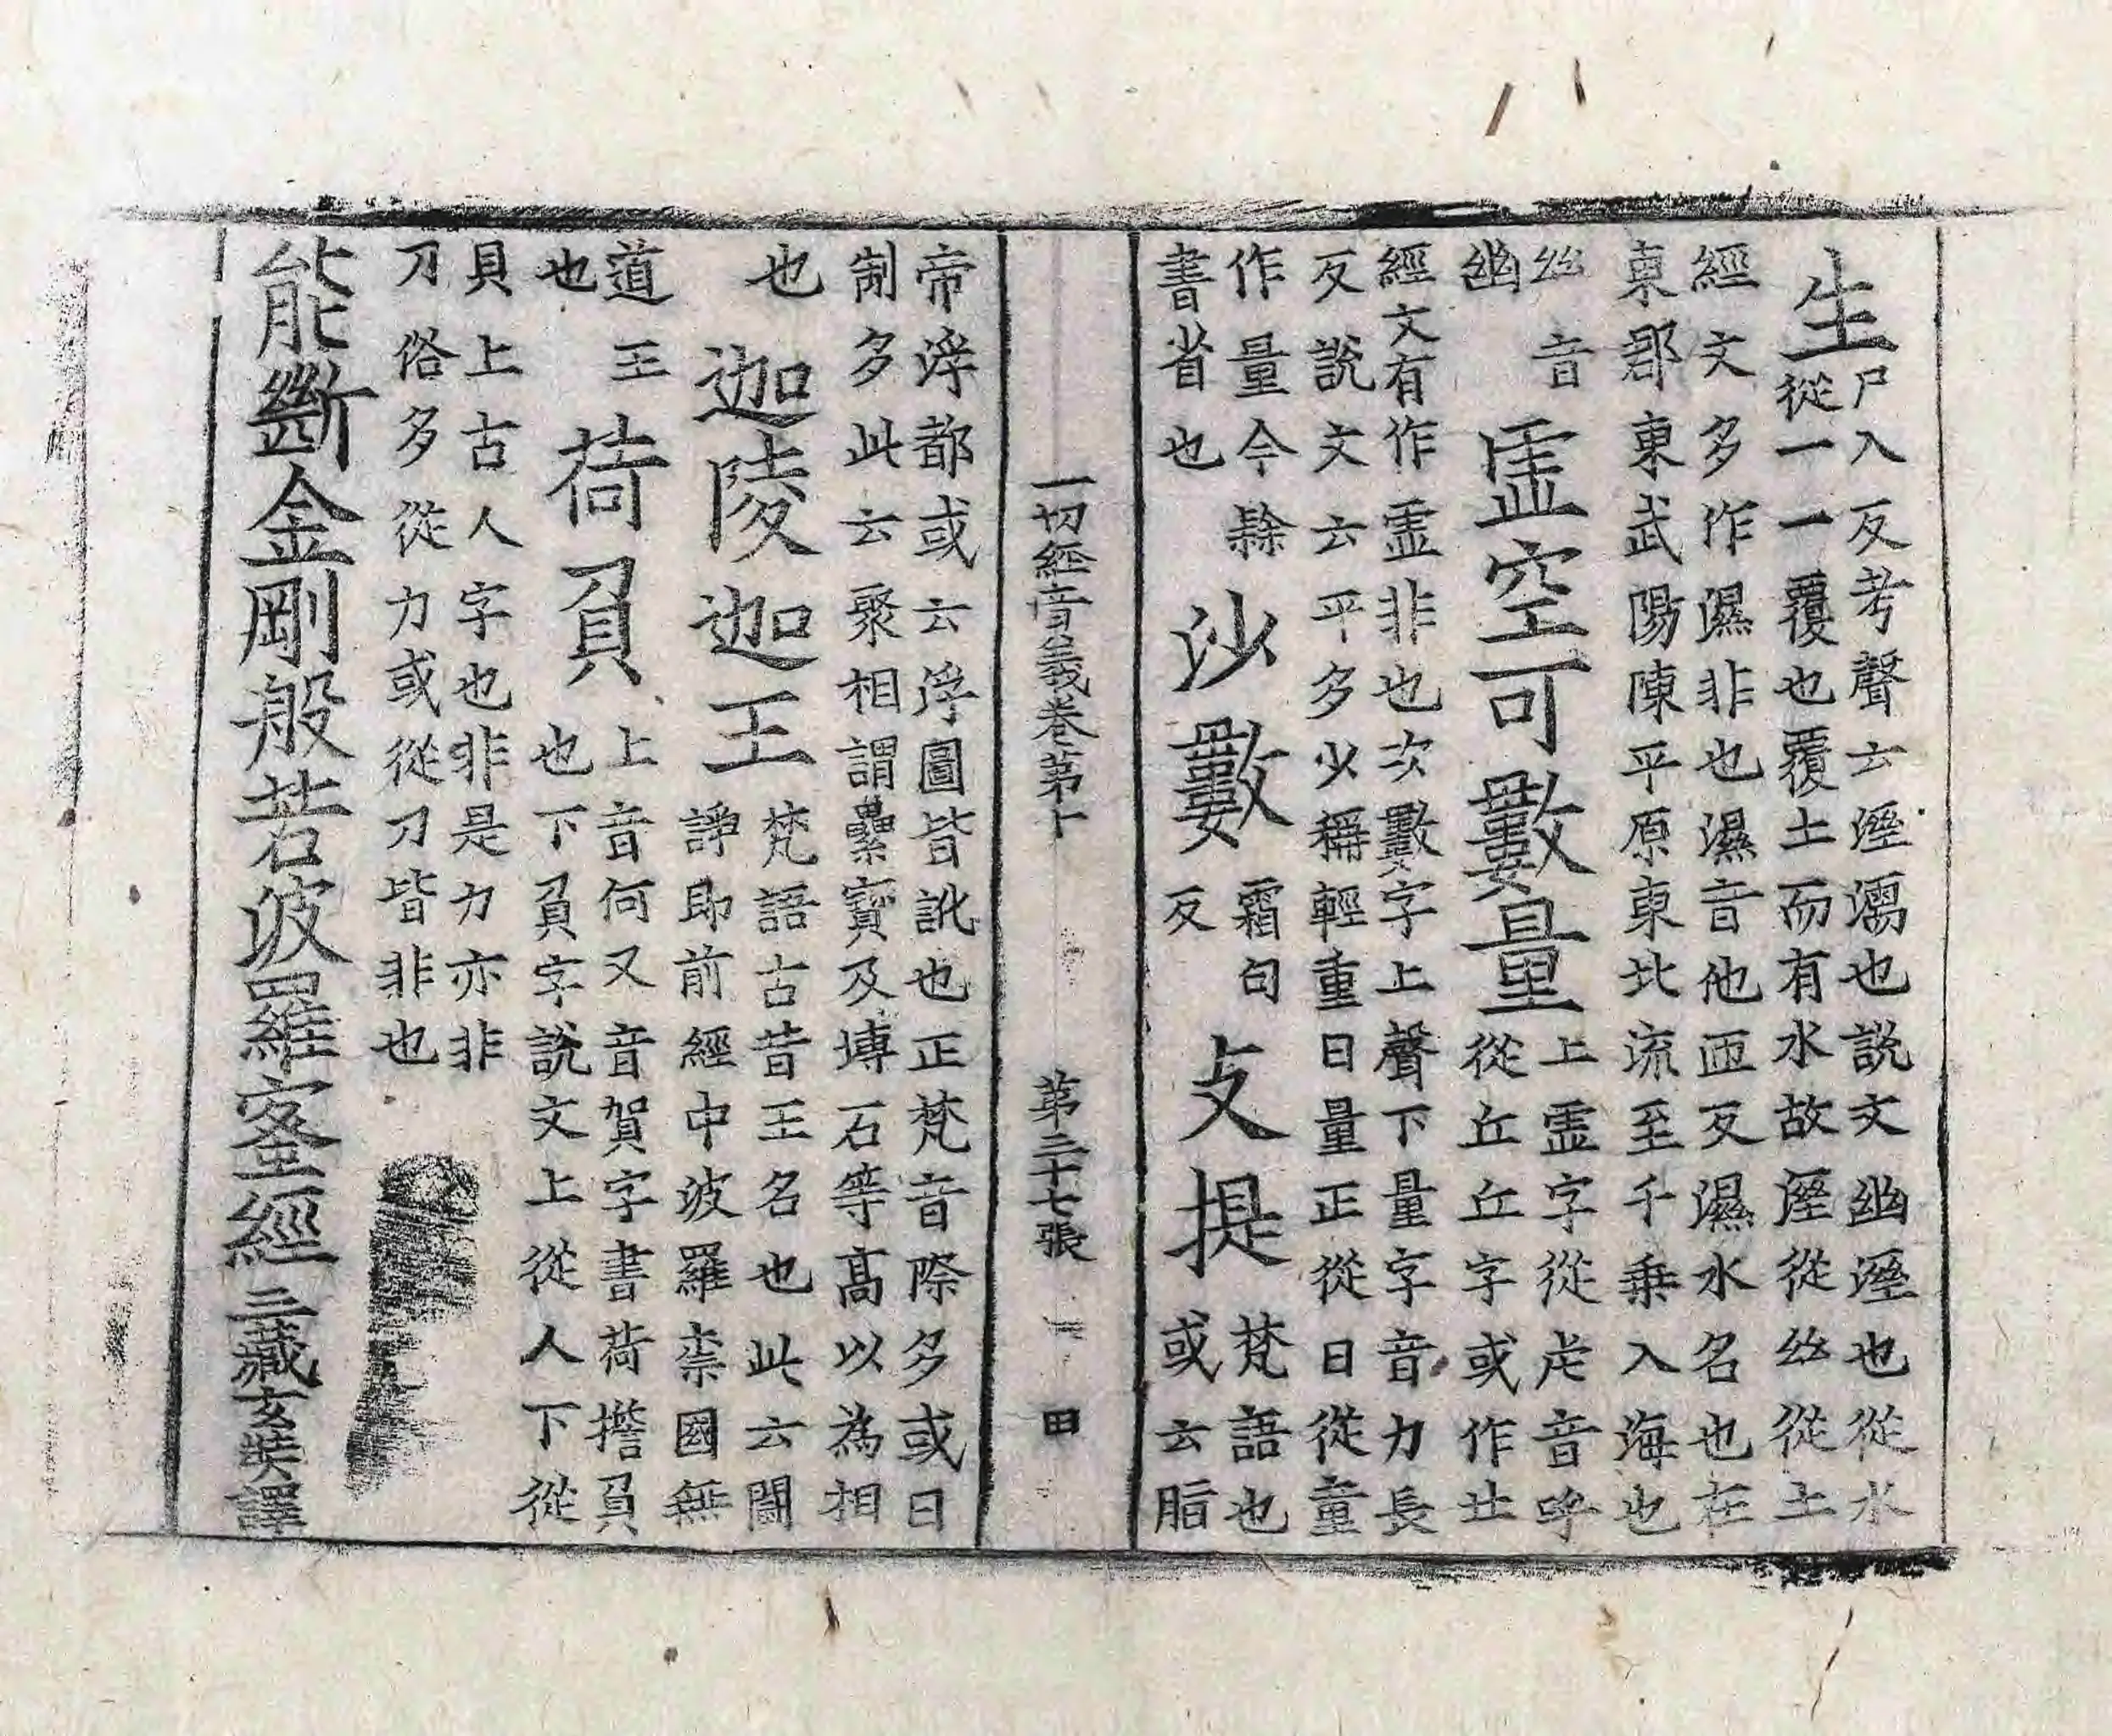 生尸入反考聲云溼濡也說文幽溼也從水
從一一覆也覆土而有水故溼從絲從土
經文多作濕非也濕音他匝反濕水名也在
東郡東武陽陳平原東北流至千乗入海也
絲音
幽
虛空可數量上虛字從虍音呼
從丘丘字或作㐀
經文有作虛非也次數字上聲下量字音力長
反說文云平多少稱輕重曰量正從曰從童
作量今隸
書省也
沙數霜句
反
攴提梵語也
或云脂
一切經音義卷第十 第三十七張 田
帝浮都或云浮圖皆訛也正梵音際多或曰
制多此云聚相謂壘寶及塼石等高以為相
也
迦陵迦王梵語古昔王名也此云鬭
諍即前經中波羅柰國無
道王
也
荷負上音何又音賀字書荷擔負
也下負字說文上從人下從
貝上古人字也非是力亦非
刀俗多從力或從刀皆非也
能斷金剛般若波羅蜜經三藏玄奘譯